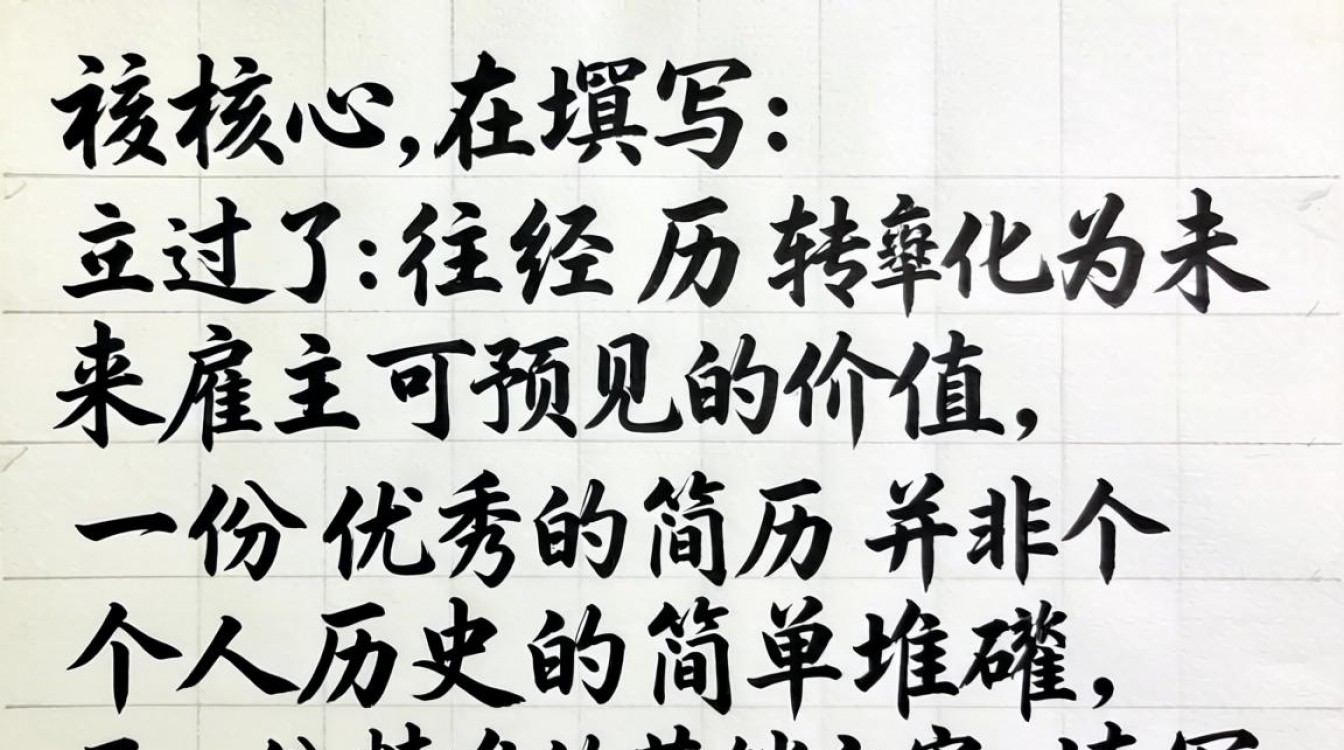 核心,在填写:
立过了:往经历转化为未
来雇主可预见的价值,
一份优秀的简历并非个
个人历史的简单堆